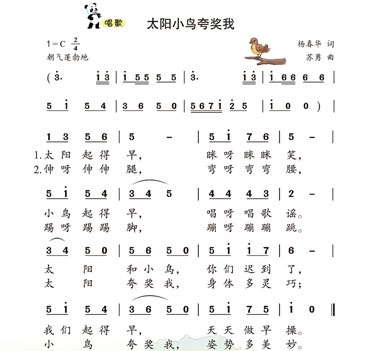 唱歌
太阳小鸟夸奖我
1=C 2/4
杨春华 词
朝气蓬勃地
苏勇 曲
( 3. i3 | i 5 5 5 5 | 3. i3 | i 6 6 6 6 |
5 i 5 4 | 3 6 0 | 5 6 7 i 2 5 | i 0 0 ) |
1 3 5 6 | 5 - | 5 i 7 6 | 5 - |
1.太 阳 起 得 早， 眯 呀 眯 眯 笑，
2.伸 呀 伸 伸 腿， 弯 呀 弯 弯 腰，
5 i 5 4 | 3 4 5 | 5 i 5 4 | 3 - |
小 鸟 起 得 早， 唱 呀 唱 歌 谣。
踢 呀 踢 踢 脚， 蹦 呀 蹦 蹦 跳。
3 4 5 0 | 5 6 5 0 | 5 i i 7 | 6 - |
太 阳 和 小 鸟， 你 们 迟 到 了，
太 阳 夸 奖 我， 身 体 多 灵 巧；
5 i 5 4 | 3 4 5 0 | 5 i 7 6 | i 0 ‖
我 们 起 得 早， 天 天 做 早 操。
小 鸟 夸 奖 我， 姿 势 多 美 妙。